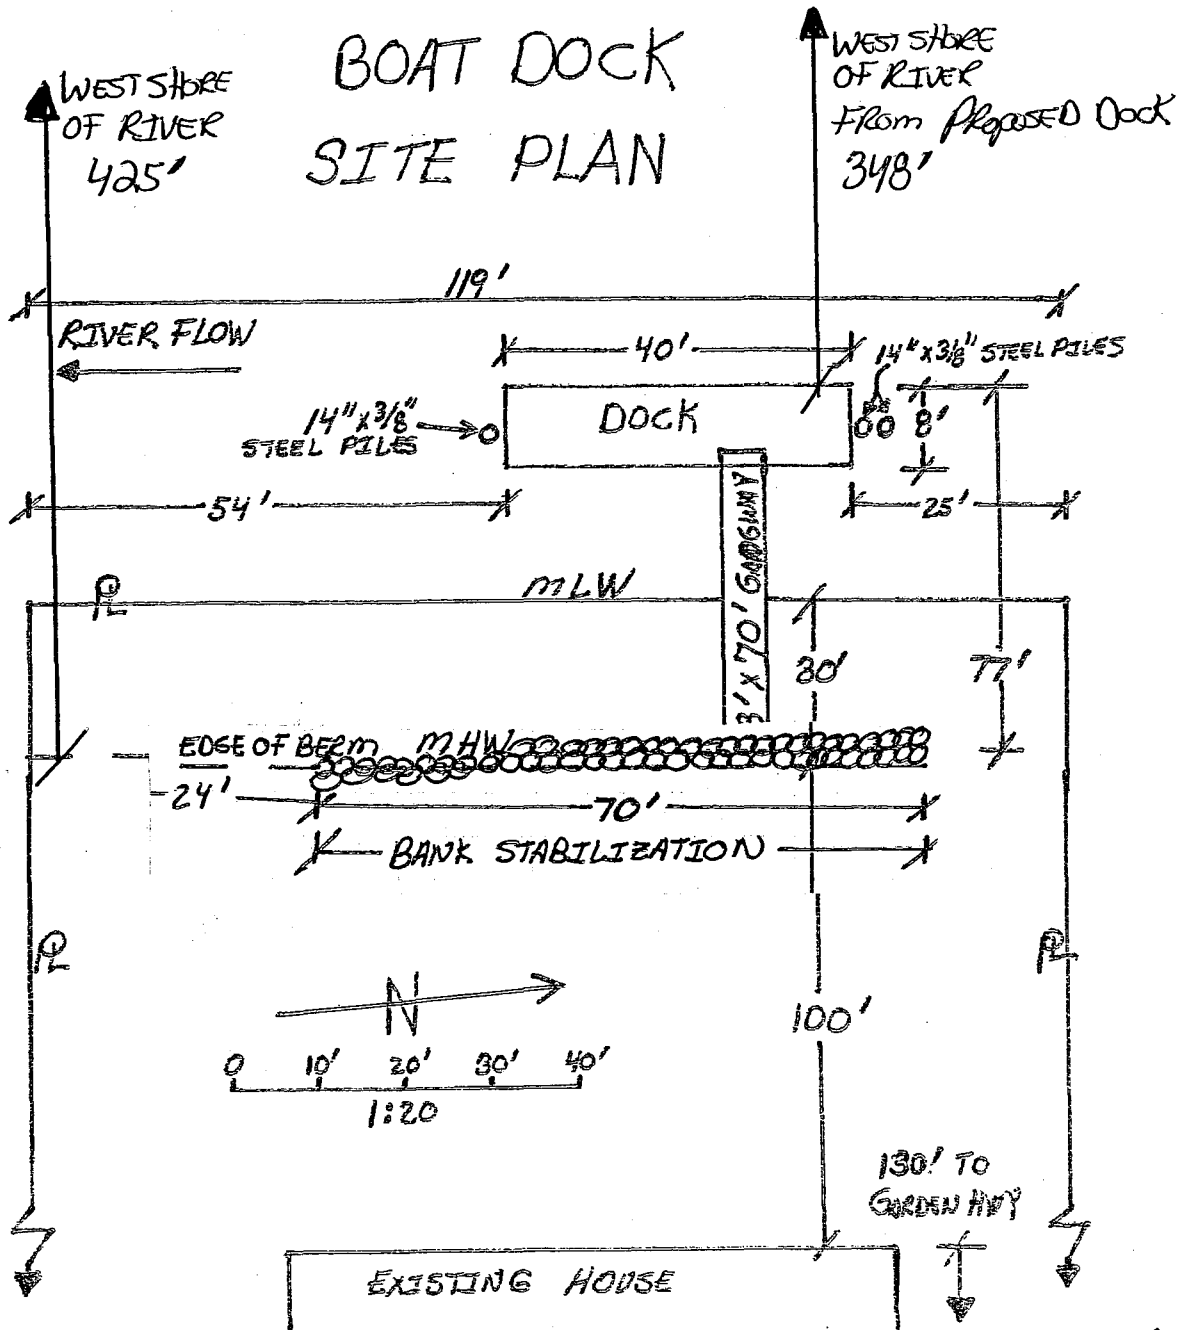 BOAT DOCK
SITE PLAN
WEST SHORE
OF RIVER
425'
WEST SHORE
OF RIVER
FROM PROPOSED DOCK
348'
119'
RIVER FLOW
40'
14" x 3/8" STEEL PILES
14" x 3/8"
STEEL PILES
DOCK
8'
54'
25'
3' x 70' GANGWAY
PL
MLW
30'
77'
EDGE OF BERM MHW
24'
70'
BANK STABILIZATION
PL
PL
N
100'
0 10' 20' 30' 40'
1:20
130' TO
GARDEN HWY
EXISTING HOUSE